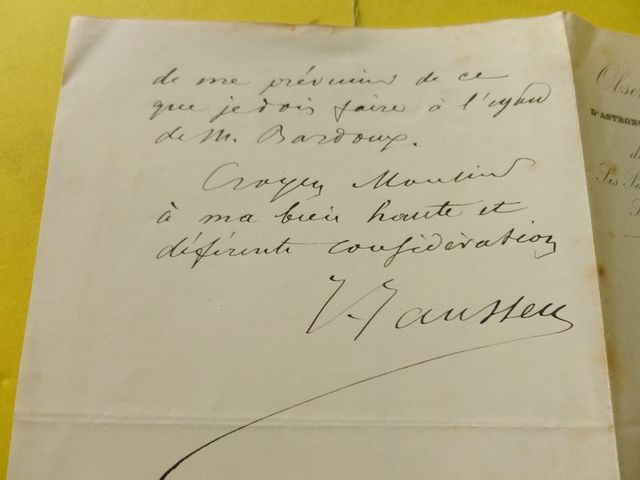 de me prévenir de ce
que je dois faire à l'égard
de M. Bardoux.
Croyez Monsieur
à ma bien haute et
déférente considération
J. Janssen
Obser
D'ASTRONO
d